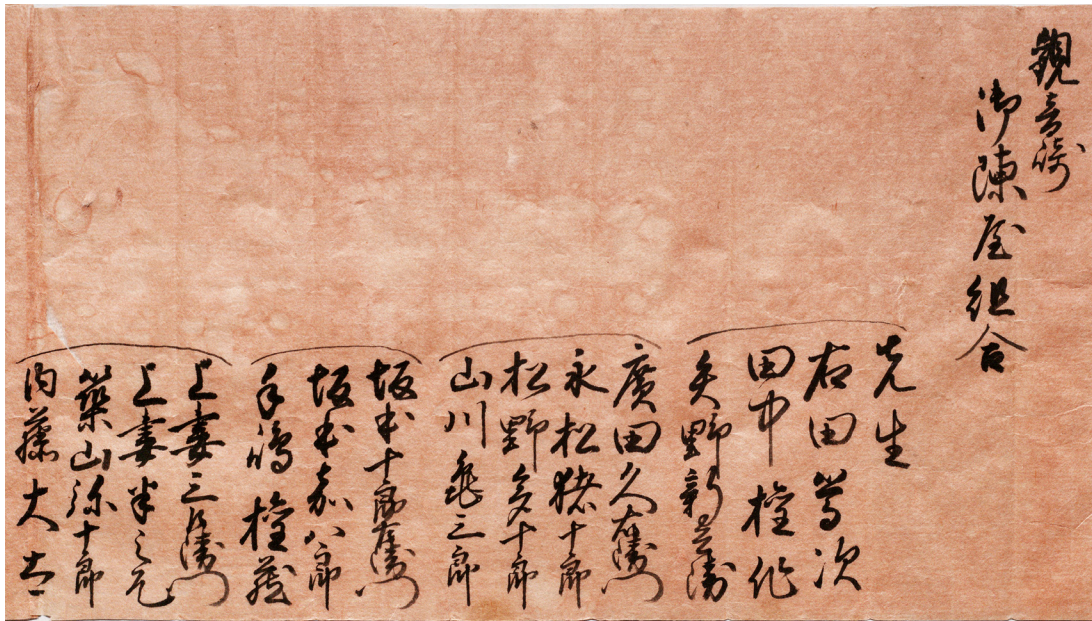 観音崎
御陳屋組合
先生
右田嵩次
田中権作
矢野新兵衛
廣田久右衛門
永松猪十郎
松野多十郎
山川亀三郎
坂本十郎右衛門
坂本嘉八郎
手嶋権蔵
上妻三郎衛門
上妻半之允
築山弥十郎
内藤大太